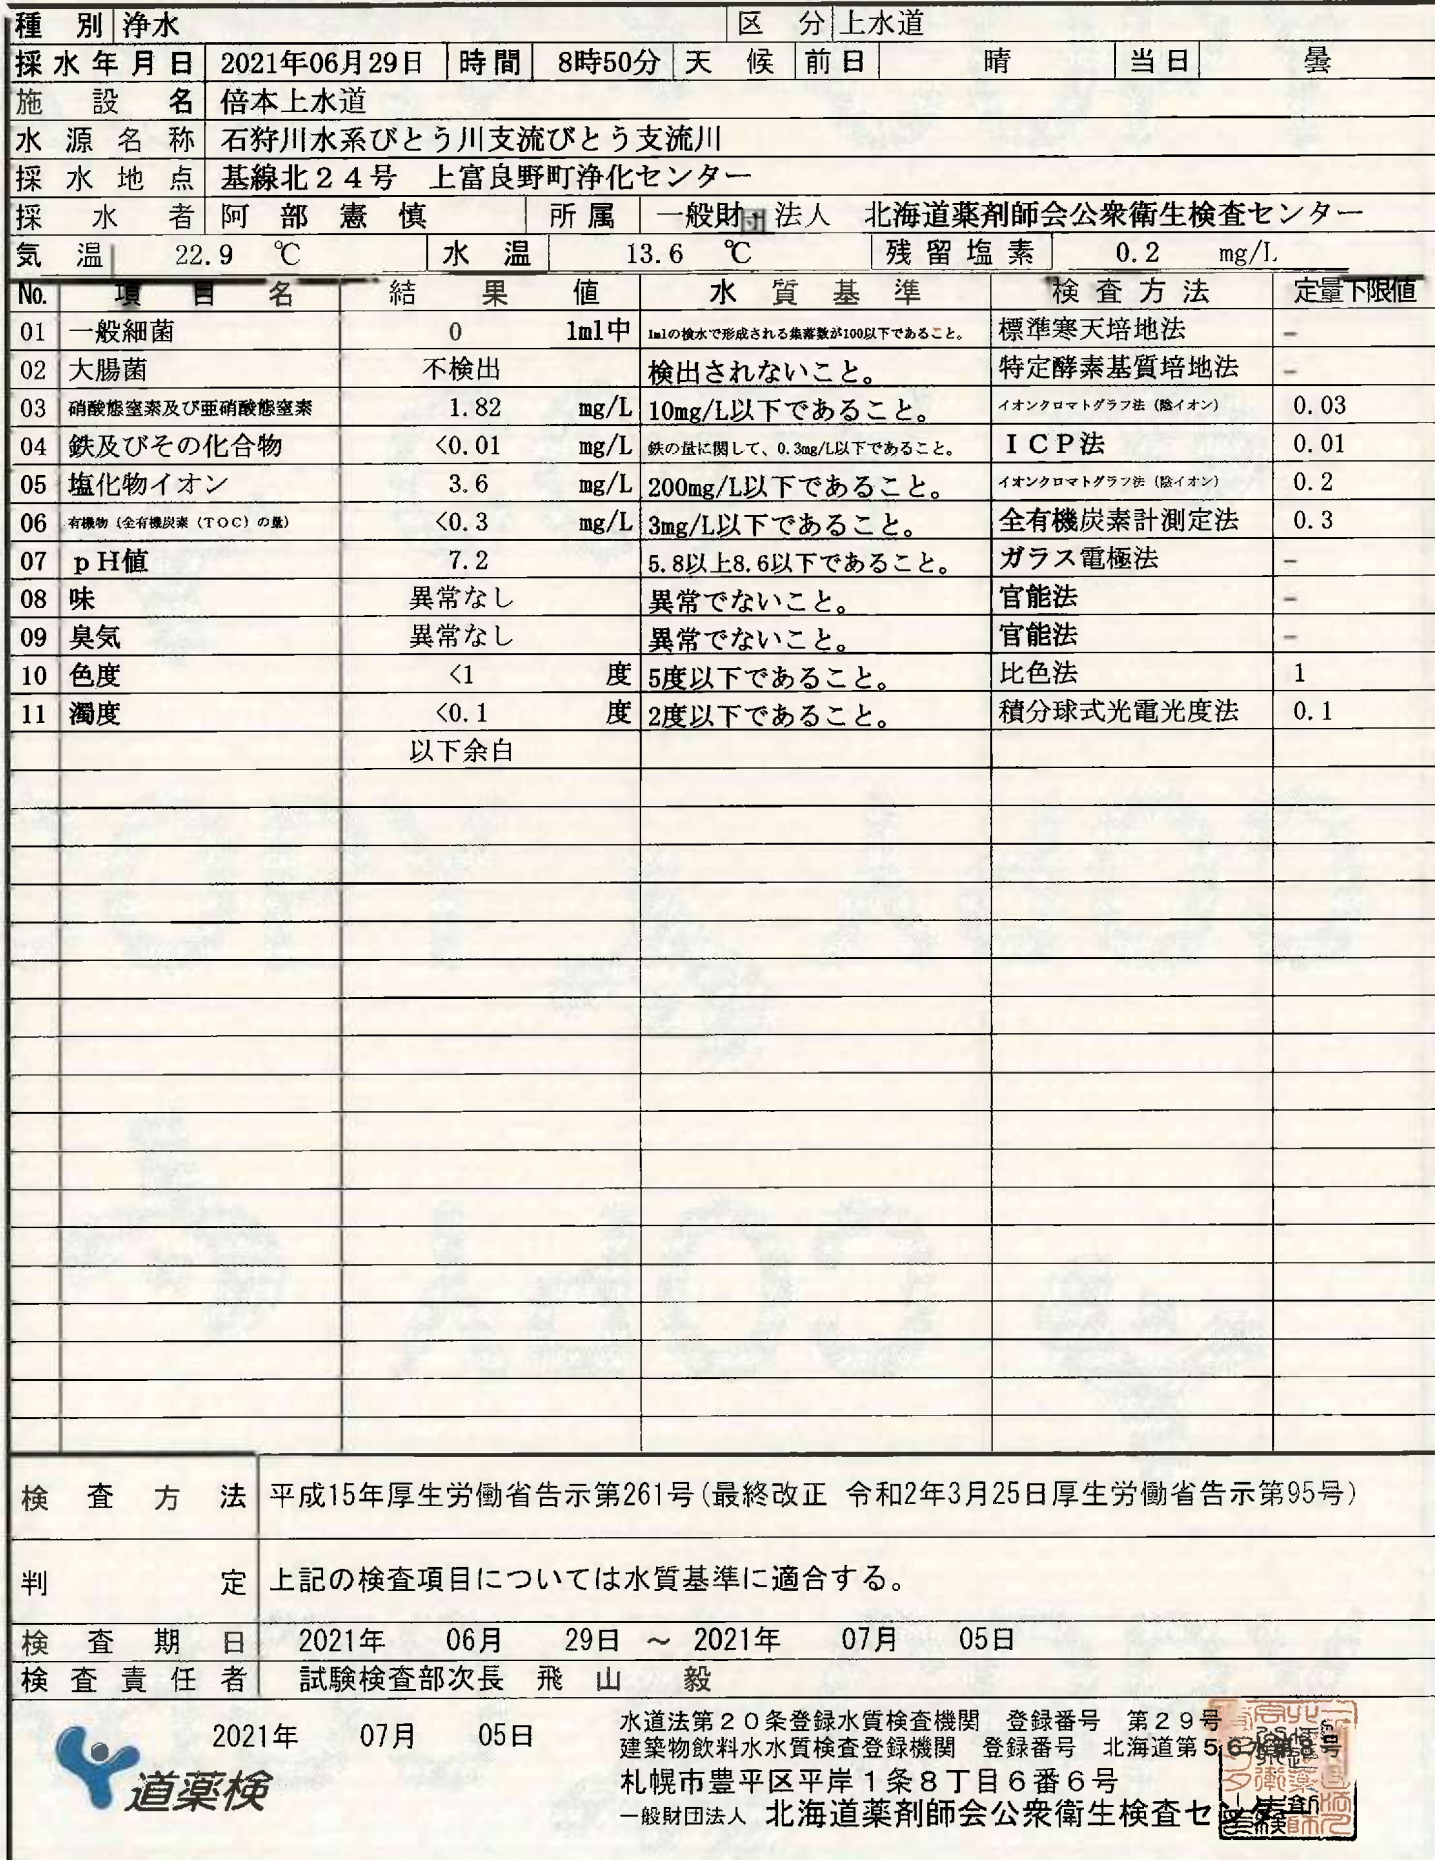 種別 浄水 区分 上水道
採水年月日 2021年06月29日 時間 8時50分 天候 前日 晴 当日 曇
施設名 倍本上水道
水源名称 石狩川水系びとう川支流びとう支流川
採水地点 基線北24号 上富良野町浄化センター
採水者 阿部憲慎 所属 一般財団法人 北海道薬剤師会公衆衛生検査センター
気温 22.9 ℃ 水温 13.6 ℃ 残留塩素 0.2 mg/L
No. 項目名 結果値 水質基準 検査方法 定量下限値
01 一般細菌 0 1ml中 1mlの検水で形成される集落数が100以下であること。 標準寒天培地法 -
02 大腸菌 不検出 検出されないこと。 特定酵素基質培地法 -
03 硝酸態窒素及び亜硝酸態窒素 1.82 mg/L 10mg/L以下であること。 イオンクロマトグラフ法(陰イオン) 0.03
04 鉄及びその化合物 <0.01 mg/L 鉄の量に関して、0.3mg/L以下であること。 ICP法 0.01
05 塩化物イオン 3.6 mg/L 200mg/L以下であること。 イオンクロマトグラフ法(陰イオン) 0.2
06 有機物(全有機炭素(TOC)の量) <0.3 mg/L 3mg/L以下であること。 全有機炭素計測定法 0.3
07 pH値 7.2 5.8以上8.6以下であること。 ガラス電極法 -
08 味 異常なし 異常でないこと。 官能法 -
09 臭気 異常なし 異常でないこと。 官能法 -
10 色度 <1 度 5度以下であること。 比色法 1
11 濁度 <0.1 度 2度以下であること。 積分球式光電光度法 0.1
以下余白
検査方法 平成15年厚生労働省告示第261号(最終改正 令和2年3月25日厚生労働省告示第95号)
判定 上記の検査項目については水質基準に適合する。
検査期日 2021年 06月 29日 ~ 2021年 07月 05日
検査責任者 試験検査部次長 飛山 毅
2021年 07月 05日
道薬検
水道法第20条登録水質検査機関 登録番号 第29号
建築物飲料水水質検査登録機関 登録番号 北海道第56水第8号
札幌市豊平区平岸1条8丁目6番6号
一般財団法人 北海道薬剤師会公衆衛生検査センター